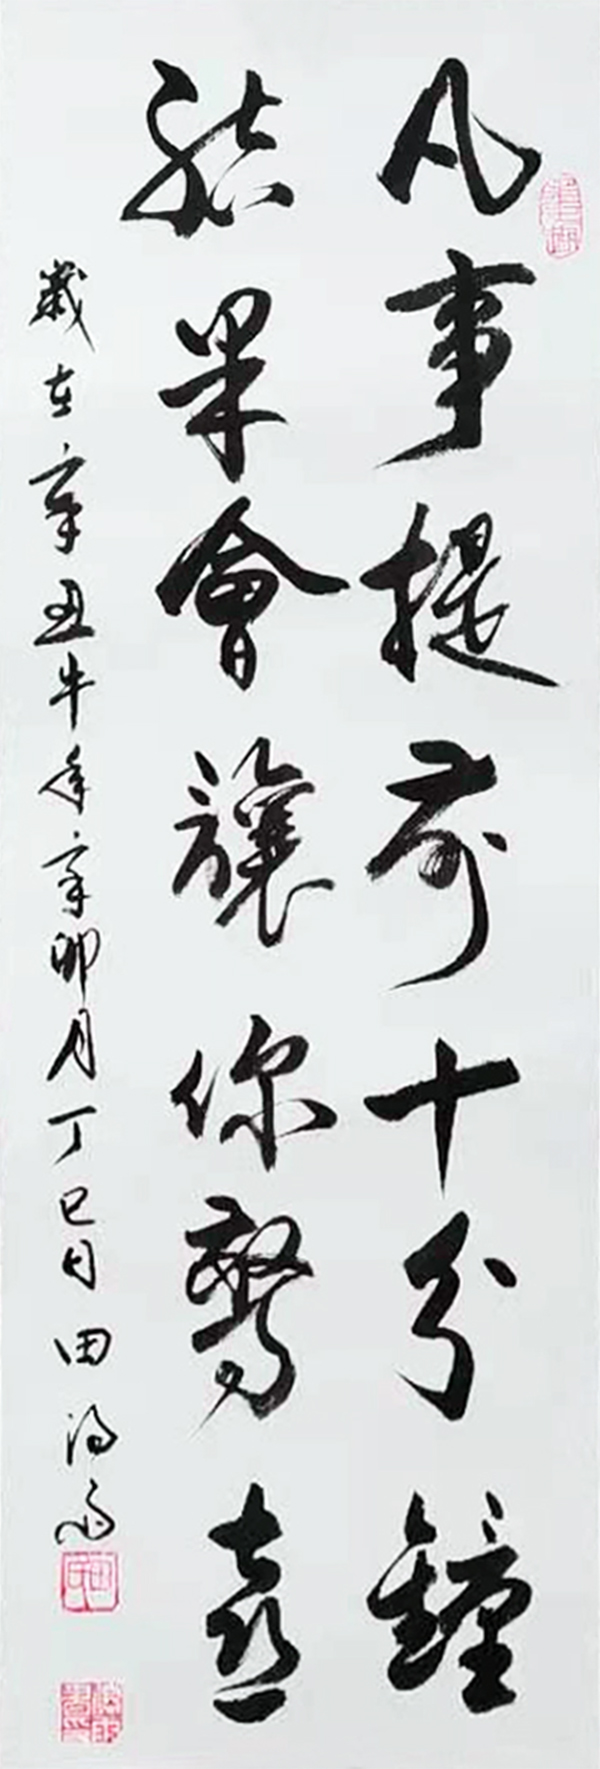 凡事提前十分鐘
結果會讓你驚喜
歲在辛丑牛年辛卯月丁巳日田